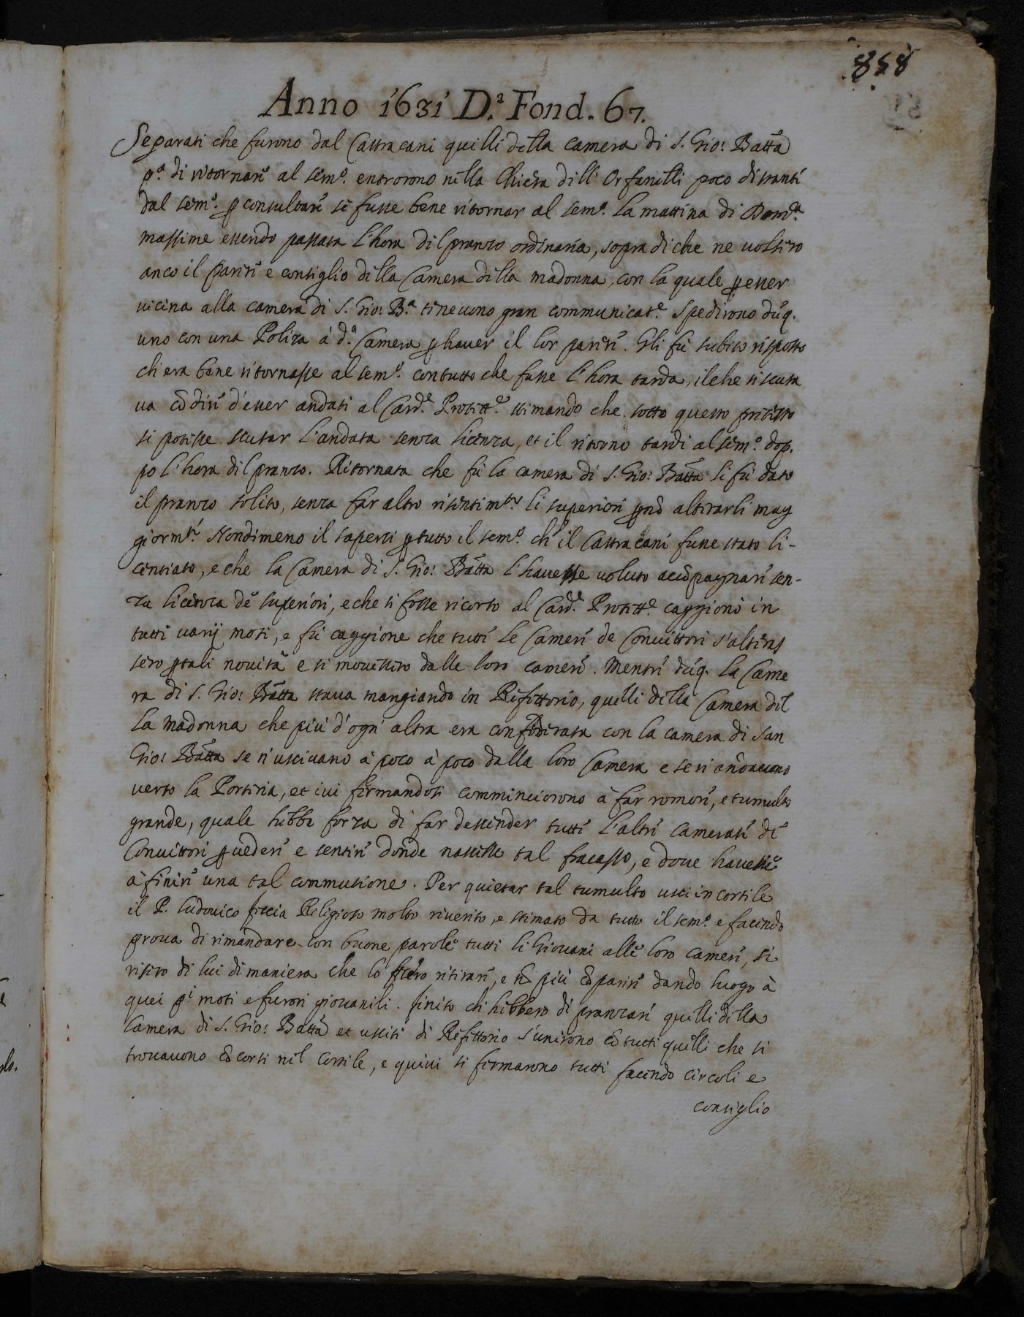 858
Anno 1631 D.ª Fond. 67.
Separati che furono dal Castracani quelli della camera di S. Gio: Batta
p.ª di ritornare al sem.º entrorono nella Chiesa delli Orfanelli poco distanti
dal sem.º p consultare se fusse bene ritornar al sem.º la mattina di Dom.ca
massime essendo passata l'hora del pranzo ordinaria, sopra di che ne volsero
anco il parere e consiglio della Camera della madonna, con la quale p esser
vicina alla camera di S. Gio: B.ª tenevono gran communicat.e Spedirono dūq.
uno con una Poliza à d.ª Camera p haver il lor parere. Gli fù subito risposto
ch'era bene ritornasse al sem.º con tutto che fusse l'hora tarda, il che si scusa
va cō dire d'esser andati al Card.e Protett.e stimando che sotto questo pretesto
si potesse scusar l'andata senza licenza, et il ritorno tardi al sem.º dop.
po l'hora del pranzo. Ritornata che fù la camera di S. Gio: Batta li fù dato
il pranzo solito, senza far altro risentim.to li superiori p nō altirarli mag
giorm.te Nondimeno il sapersi p tutto il sem.º ch'il Castracani fusse stato li-
centiato, e che la Camera di S. Gio: Batta l'havesse voluto accōpagnare sen-
za licenza de superiori, e che si fosse ricorso al Card.e Protett.e caggionò in
tutti varij moti, e fù caggione che tutte le Camere de Convittori s'alteras
sero p tali novità e si movessero dalle loro camere. Mentre dūq. la Came
ra di S. Gio: Batta stava mangiando in Refettorio, quelli della Camera del
la Madonna che più d'ogn'altra era confederata con la camera di San
Gio: Batta se n'uscivano à poco à poco dalla loro Camera e se ne andavano
verso la Porteria, et ivi fermandosi comminciorono à far romore, e tumulto
grande, quale hebbe forza di far descender tutte l'altre Camerate de
Convittori p vedere e sentire donde nascesse tal fracasso, e dove havesse
à finire una tal commutione. Per quietar tal tumulto usci in cortile
il P. Ludovico Religioso molto riverito, e stimato da tutto il sem.º e facendo
prova di rimandare con buone parole tutti li Giovani alle loro camere, si
risero di lui di maniera che lo fecero ritirare, e nō più cōparire dando luogo à
quei p.i moti e furori giovanili. finito ch'hebbero di pranzare quelli della
Camera di S. Gio: Batta et usciti di Refettorio s'unirono cō tutti quelli che si
trovavono cōcorsi nel Cortile, e quivi si fermarono tutti facendo circoli e
consiglio